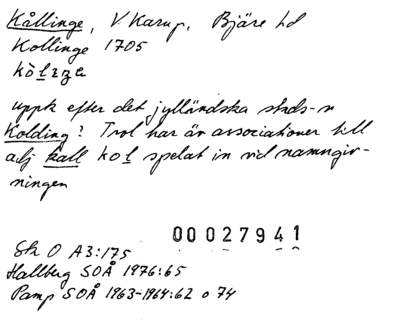 Kållinge, V Karup, Bjäre hd
Kollinge 1705
uppk efter det jylländska stads-n
Kolding? Trol har är associationer till
adj kall kol spelat in vid namngiv-
ningen
00027941
Sk O A3:175
Hallberg SOÅ 1976:65
Pamp SOÅ 1963-1964:62 o 74